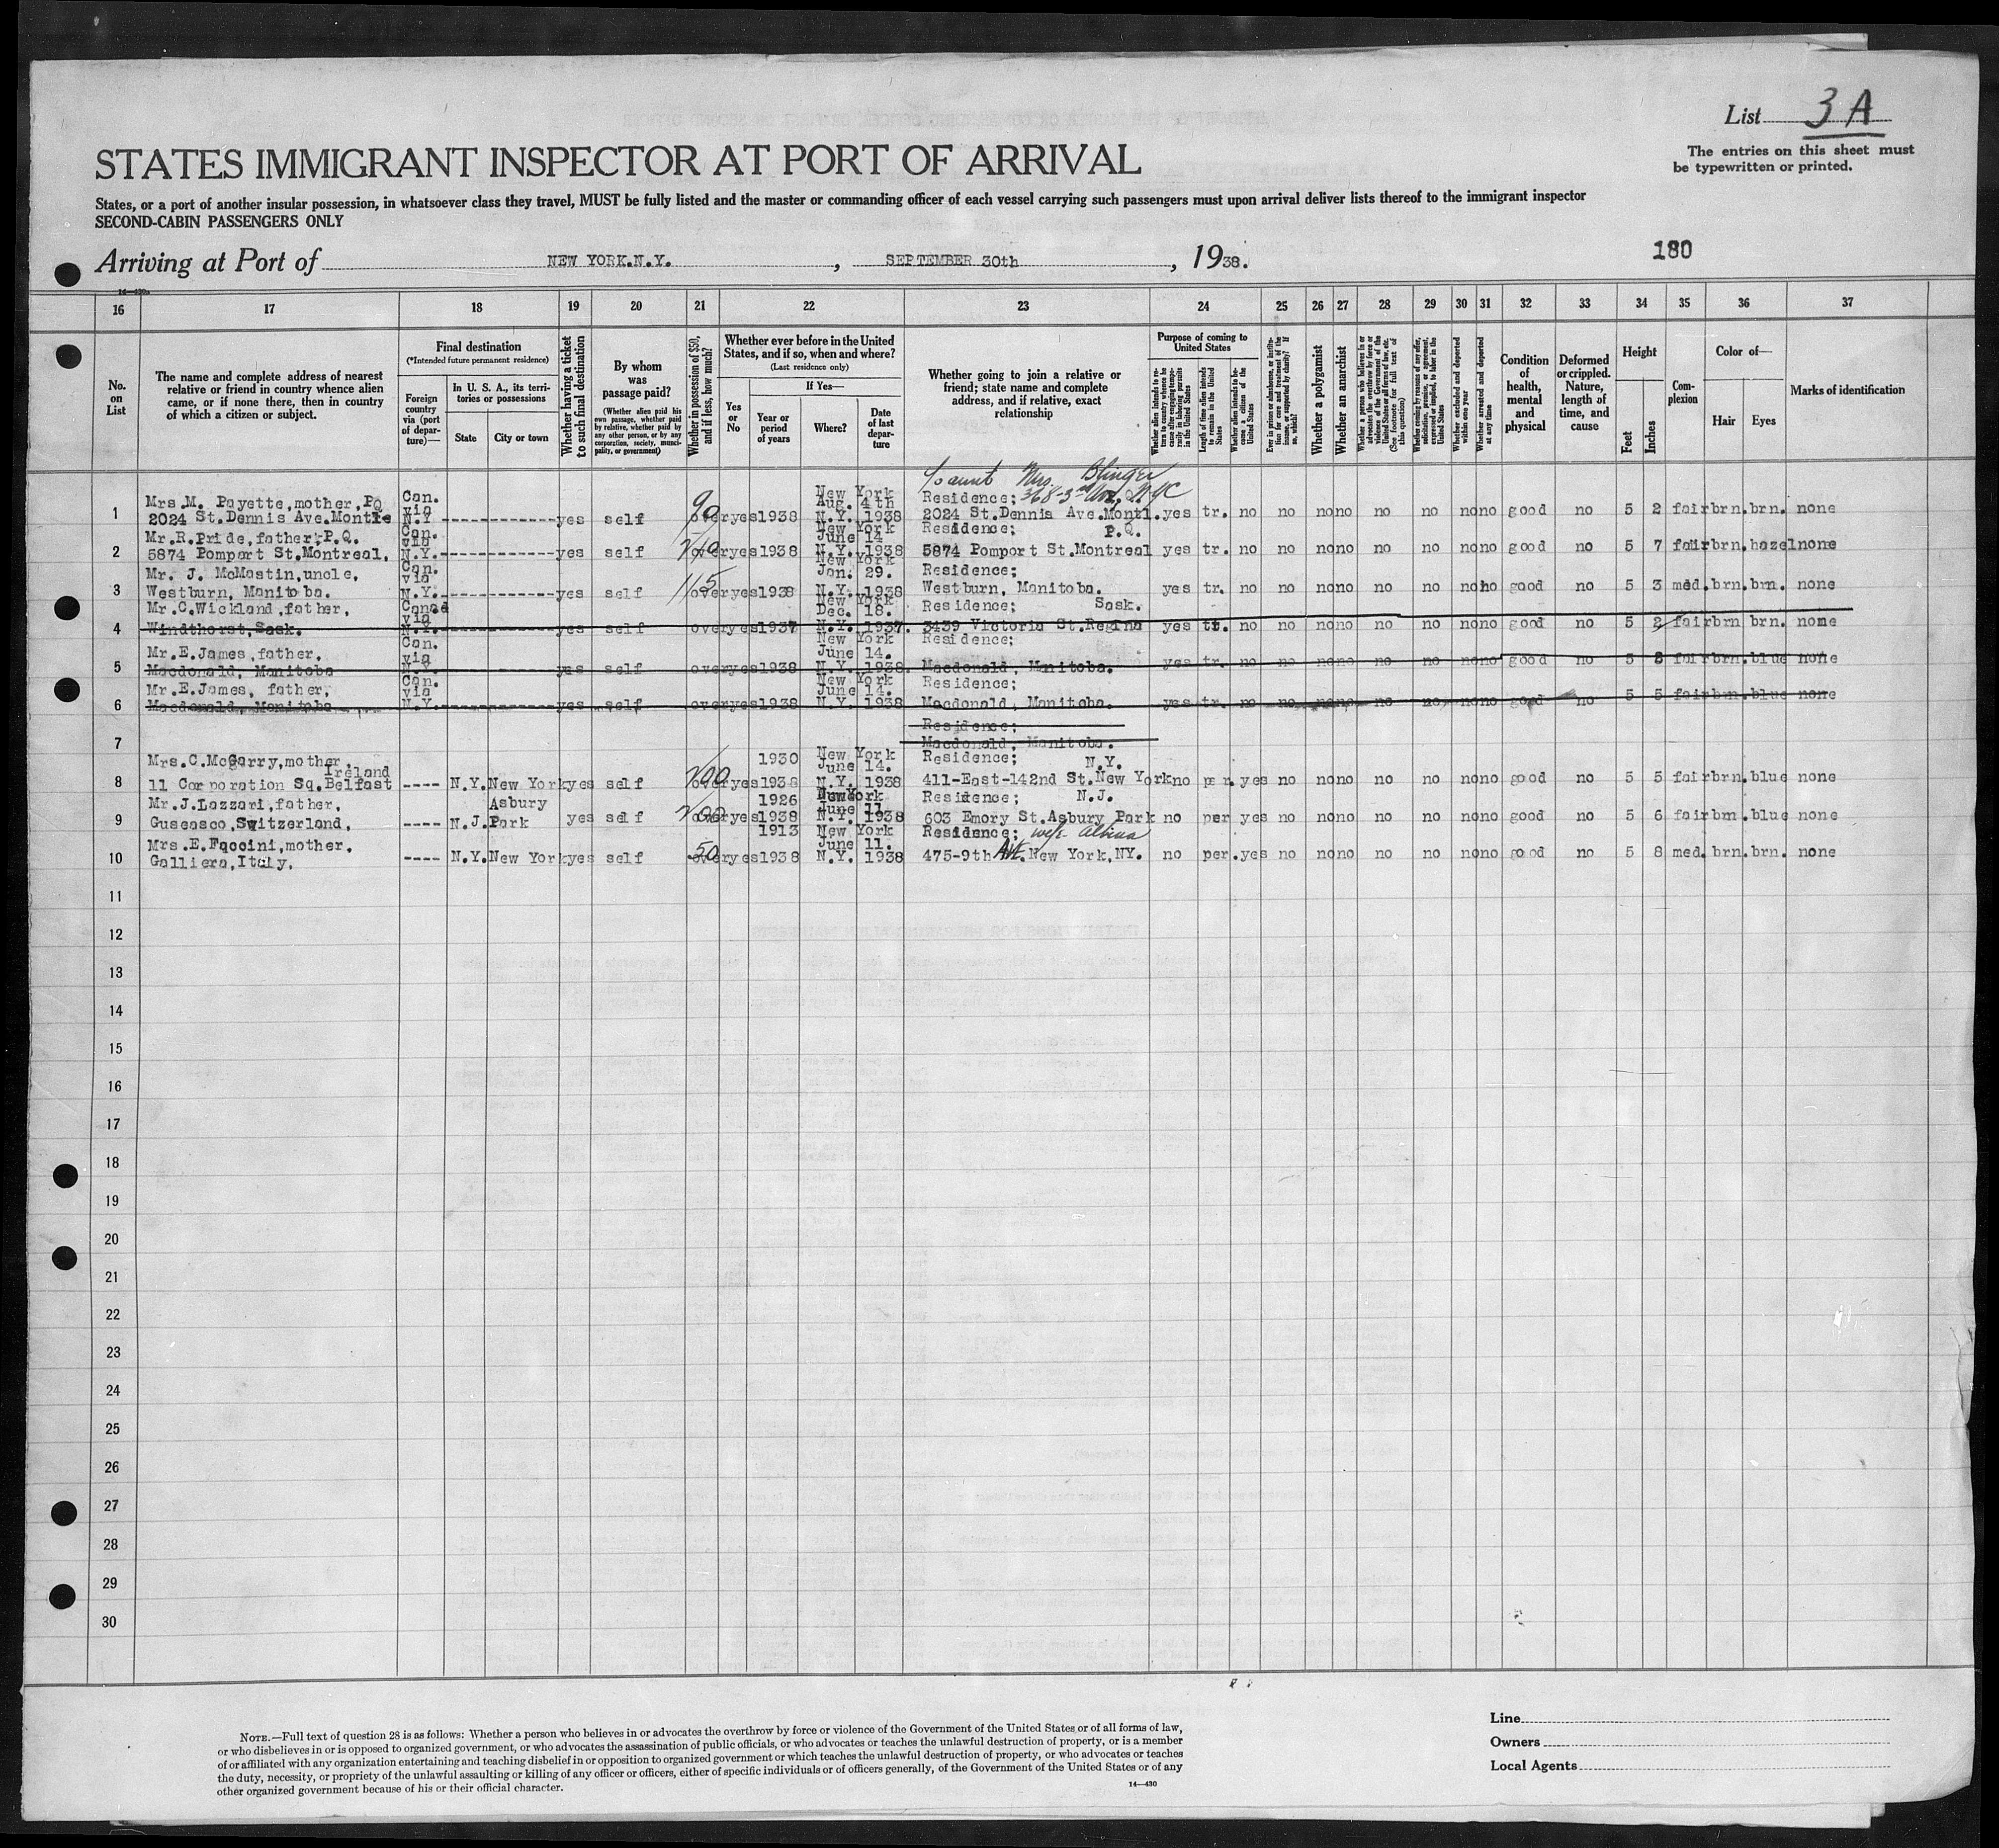 List 3 A
The entries on this sheet must
be typewritten or printed.
STATES IMMIGRANT INSPECTOR AT PORT OF ARRIVAL
States, or a port of another insular possession, in whatsoever class they travel, MUST be fully listed and the master or commanding officer of each vessel carrying such passengers must upon arrival deliver lists thereof to the immigrant inspector
SECOND-CABIN PASSENGERS ONLY
Arriving at Port of NEW YORK.N.Y. , SEPTEMBER 30th , 1938.
180
16 17 18 19 20 21 22 23 24 25 26 27 28 29 30 31 32 33 34 35 36 37
No. on List
The name and complete address of nearest
relative or friend in country whence alien
came, or if none there, then in country
of which a citizen or subject.
Final destination
(*Intended future permanent residence)
Foreign country via (port of departure)—
In U. S. A., its territories or possessions
State
City or town
Whether having a ticket to such final destination
By whom was passage paid?
(Whether alien paid his own passage, whether paid by relative, whether paid by any other person, or by any corporation, society, municipality, or government)
Whether in possession of $50, and if less, how much?
Whether ever before in the United
States, and if so, when and where?
(Last residence only)
Yes or No
If Yes—
Year or period of years
Where?
Date of last departure
Whether going to join a relative or
friend; state name and complete
address, and if relative, exact
relationship
Purpose of coming to United States
Whether alien intends to return to country whence he came after engaging temporarily in laboring pursuits in the United States
Length of time alien intends to remain in the United States
Whether alien intends to become a citizen of the United States
Ever in prison or almshouse, or institution for care and treatment of the insane, or supported by charity? If so, which?
Whether a polygamist
Whether an anarchist
Whether a person who believes in or advocates the overthrow by force or violence of the Government of the United States or all forms of law, etc. (See footnote for full text of this question)
Whether coming by reason of any offer, solicitation, promise, or agreement, expressed or implied, to labor in the United States
Whether excluded and deported within one year
Whether arrested and deported at any time
Condition of health, mental and physical
Deformed or crippled. Nature, length of time, and cause
Height
Feet
Inches
Complexion
Color of—
Hair
Eyes
Marks of identification
To aunt Mrs.
1 Mrs.M. Payette,mother,PQ Can. via New York Aug. 4th Residence; 368-3rd Ave, NYC
2024 St.Dennis Ave. N.Y. ------------- yes self 90 over yes 1938 N.Y. 1938 2024 St.Dennis Ave.Montl. yes tr. no no no no no no no good no 5 2 fair brn. brn. none
2 Mr.R.Pride,father,P.Q. Can. via New York June 14 Residence; P.Q.
5874 Pomport St.Montreal, N.Y. ------------- yes self over yes 1938 N.Y. 1938 5874 Pomport St.Montreal yes tr. no no no no no no no good no 5 7 fair brn. hazel none
3 Mr. J. McMastin,uncle, Can. via New York Jan. 29. Residence;
Westburn, Manitoba. N.Y. ------------- yes self 115 over yes 1938 N.Y. 1938 Westburn, Manitoba. yes tr. no no no no no no no good no 5 3 med. brn. brn. none
4 Mr.C.Wickland,father, Canad via New York Dec. 18. Residence; Sask.
Windthorst,Sask. N.Y. ------------- yes self over yes 1937 N.Y. 1937. 3439 Victoria St.Regina yes tr. no no no no no no no good no 5 2 fair brn brn. none
5 Mr.E.James,father, Can. via New York June 14. Residence;
Macdonald, Manitoba N.Y. ------------- yes self over yes 1938 N.Y. 1938 Macdonald, Manitoba. yes tr. no no no no no no no good no 5 8 fair brn. blue none
6 Mr.E.James, father, Can. via New York June 14. Residence;
Macdonald, Manitoba N.Y. ------------- yes self over yes 1938 N.Y. 1938 Macdonald, Manitoba. yes tr. no no no no no no no good no 5 5 fair brn. blue none
Residence;
7 Macdonald, Manitoba.
8 Mrs.C.McGarry,mother, Ireland 1930 New York June 14. Residence; N.Y.
11 Corporation Sq.Belfast ---- N.Y. New York yes self 200 over yes 1938 N.Y. 1938 411-East-142nd St.New York no per. yes no no no no no no no good no 5 5 fair brn. blue none
9 Mr.J.Lazzari,father, Asbury 1926 New York June 11 Residence; N.J.
Guseasco,Switzerland, ---- N.J. Park yes self 200 over yes 1938 N.Y. 1938 603 Emory St.Asbury Park no per yes no no no no no no no good no 5 6 fair brn. blue none
10 Mrs.E.Faccini,mother. 1913 New York June 11. Residence; wife Albina
Galliera,Italy. ---- N.Y. New York yes self 50 over yes 1938 N.Y. 1938 475-9th Ave. New York,NY. no per. yes no no no no no no no good no 5 8 med. brn. brn. none
11
12
13
14
15
16
17
18
19
20
21
22
23
24
25
26
27
28
29
30
NOTE.—Full text of question 28 is as follows: Whether a person who believes in or advocates the overthrow by force or violence of the Government of the United States or of all forms of law,
or who disbelieves in or is opposed to organized government, or who advocates the assassination of public officials, or who advocates or teaches the unlawful destruction of property, or is a member
of or affiliated with any organization entertaining and teaching disbelief in or opposition to organized government or which teaches the unlawful destruction of property, or who advocates or teaches
the duty, necessity, or propriety of the unlawful assaulting or killing of any officer or officers, either of specific individuals or of officers generally, of the Government of the United States or of any
other organized government because of his or their official character.
14—430
Line
Owners
Local Agents